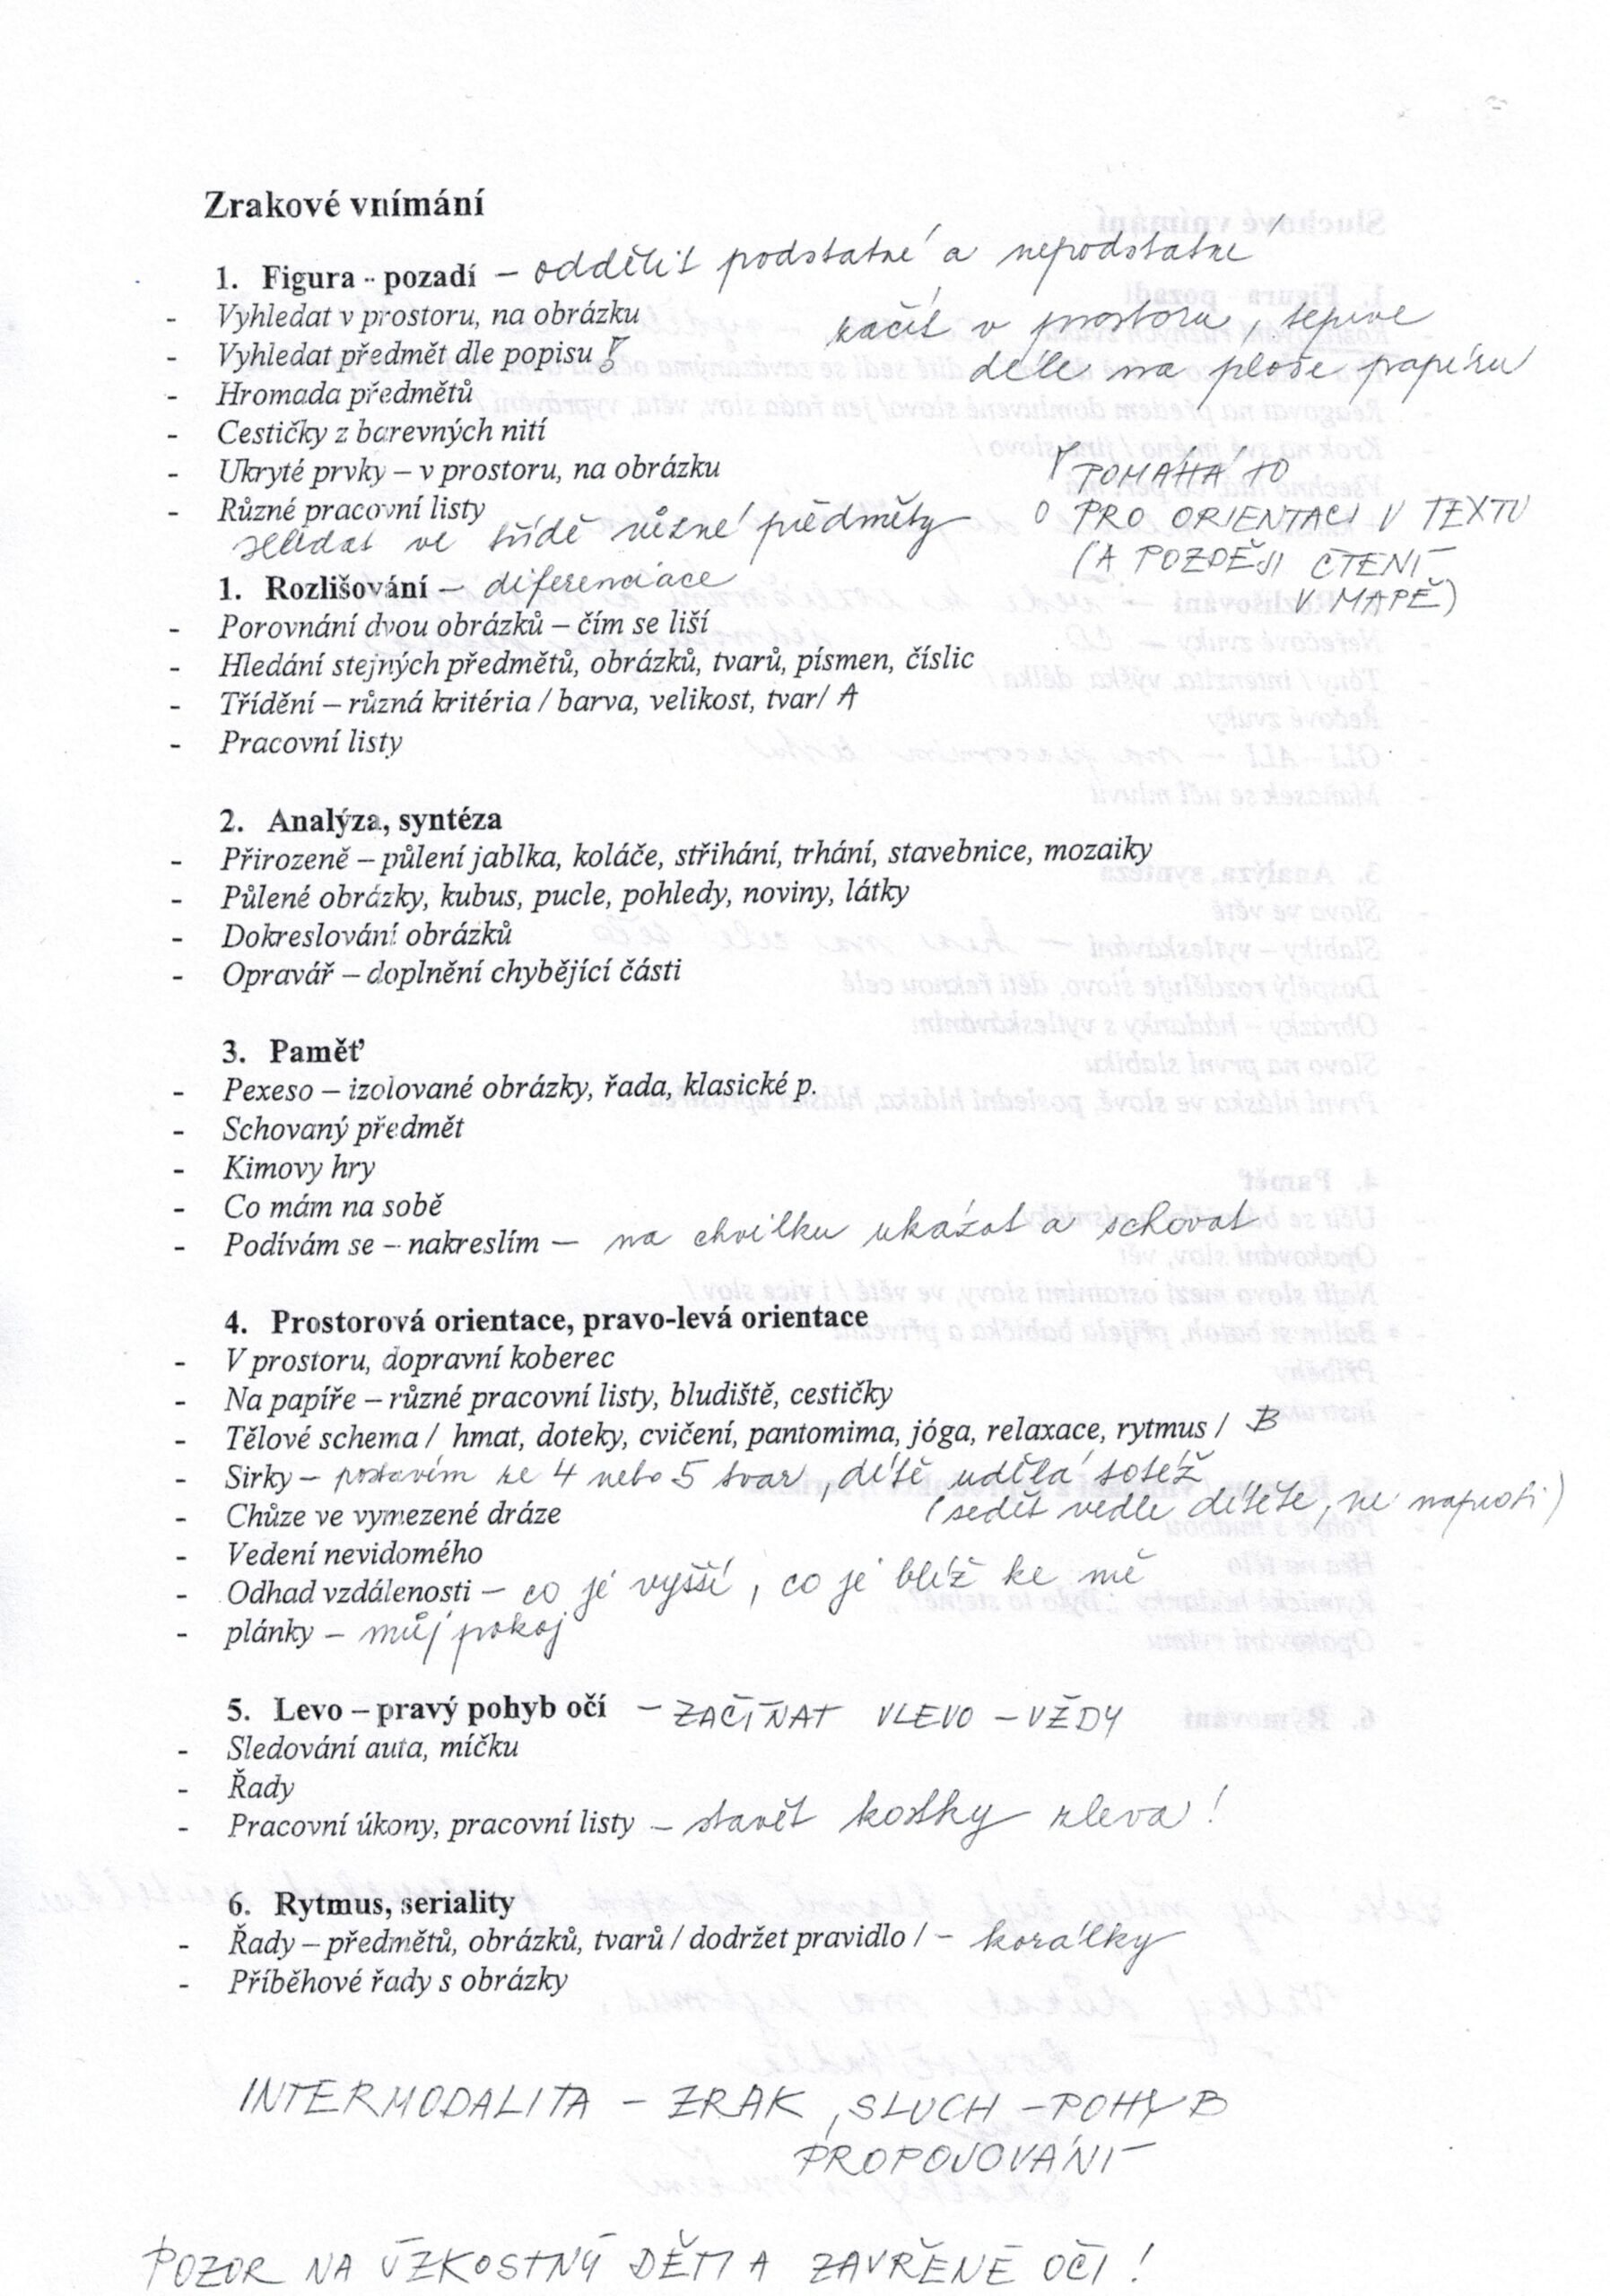 Zrakové vnímání
1. Figura - pozadí – oddělit podstatné a nepodstatné
- Vyhledat v prostoru, na obrázku
začít v prostoru, teprve
- Vyhledat předmět dle popisu !
déle na ploše papíru
- Hromada předmětů
- Cestičky z barevných nití
- Ukryté prvky – v prostoru, na obrázku
! POMÁHÁ TO
- Různé pracovní listy
PRO ORIENTACI V TEXTU
hledat ve třídě různé předměty
(A POZDĚJI ČTENÍ
V MAPĚ)
1. Rozlišování – diferenciace
- Porovnání dvou obrázků – čím se liší
- Hledání stejných předmětů, obrázků, tvarů, písmen, číslic
- Třídění – různá kritéria / barva, velikost, tvar/ A
- Pracovní listy
2. Analýza, syntéza
- Přirozeně – půlení jablka, koláče, střihání, trhání, stavebnice, mozaiky
- Půlené obrázky, kubus, pucle, pohledy, noviny, látky
- Dokreslování obrázků
- Opravář – doplnění chybějící části
3. Paměť
- Pexeso – izolované obrázky, řada, klasické p.
- Schovaný předmět
- Kimovy hry
- Co mám na sobě
- Podívám se – nakreslím – na chvilku ukázat a schovat
4. Prostorová orientace, pravo-levá orientace
- V prostoru, dopravní koberec
- Na papíře – různé pracovní listy, bludiště, cestičky
- Tělové schema / hmat, doteky, cvičení, pantomima, jóga, relaxace, rytmus / B
- Sirky – postavím ze 4 nebo 5 tvar, dítě udělá totéž
(sedět vedle dítěte, ne naproti)
- Chůze ve vymezené dráze
- Vedení nevidomého
- Odhad vzdálenosti – co je vyšší, co je blíž ke mě
- plánky – můj pokoj
5. Levo – pravý pohyb očí – ZAČÍNAT VLEVO – VŽDY
- Sledování auta, míčku
- Řady
- Pracovní úkony, pracovní listy – stavět kostky zleva!
6. Rytmus, seriality
- Řady – předmětů, obrázků, tvarů / dodržet pravidlo / – korálky
- Příběhové řady s obrázky
INTERMODALITA – ZRAK, SLUCH – POHYB
PROPOJOVÁNÍ
POZOR NA ÚZKOSTNÝ DĚTI A ZAVŘENÉ OČI!